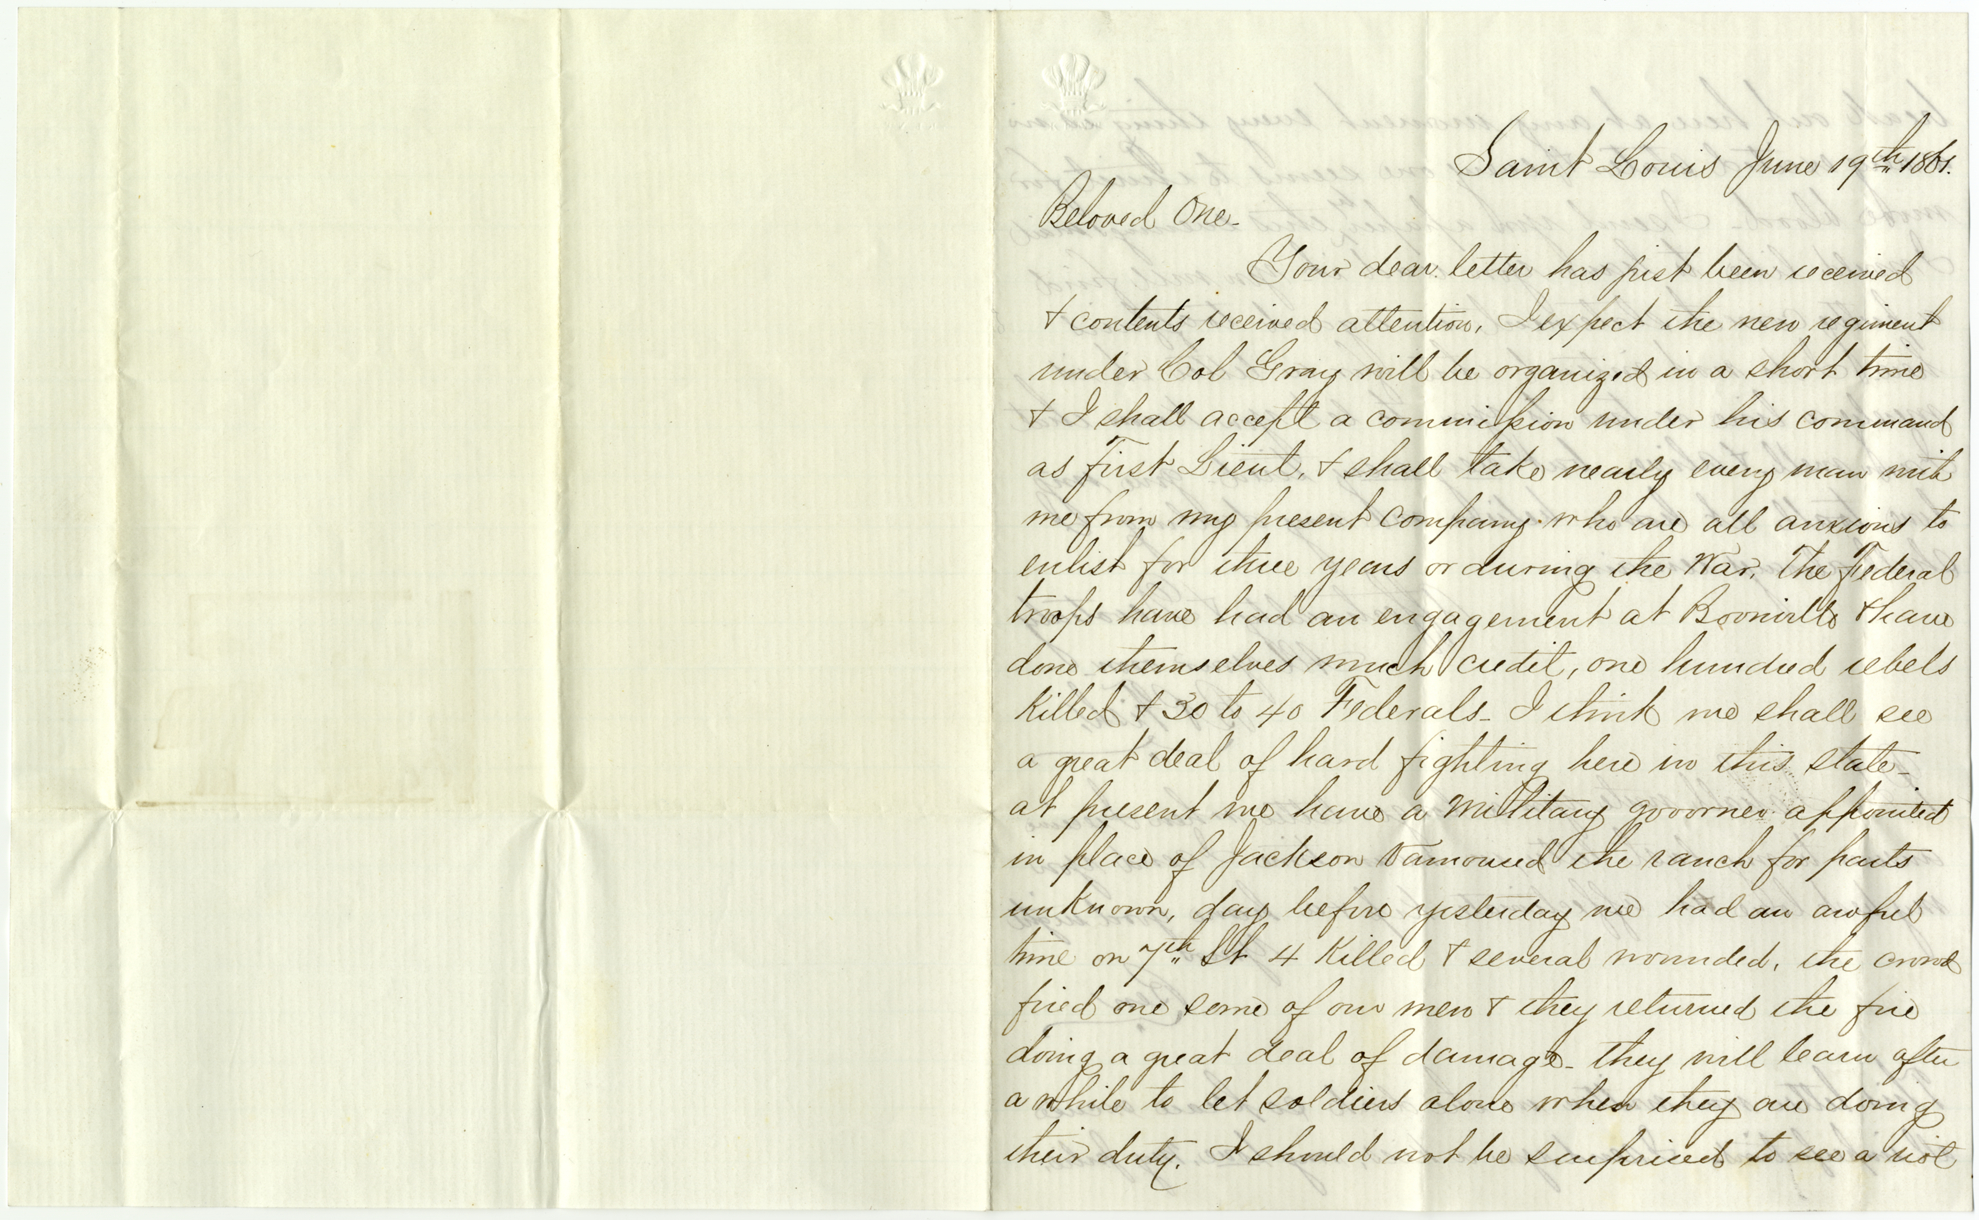 Saint Louis June 19th 1861.
Beloved One-
Your dear letter has just been received
& contents received attention, I expect the new regiment
under Col Gray will be organized in a short time
& I shall accept a commission under his command
as First Lieut, & shall take nearly every man with
me from my present company who are all anxious to
enlist for three years or during the War. The Federal
troops have had an engagement at Boonville & have
done themselves much credit, one hundred rebels
killed & 30 to 40 Federals- I think we shall see
a great deal of hard fighting here in this state-
at present we have a Millitary govorner appointed
in place of Jackson Vamoused the ranch for parts
unknown, day before yesterday we had an awful
time on 7th St 4 killed & several wounded, the crowd
fired one some of our men & they returned the fire
doing a great deal of damage- they will learn after
a while to let soldiers alone when they are doing
their duty. I should not be surprised to see a riot